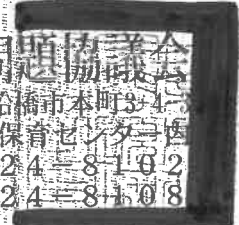 題協議会
船橋市本町3-4-3
保育センター内
24-8102
24-8108